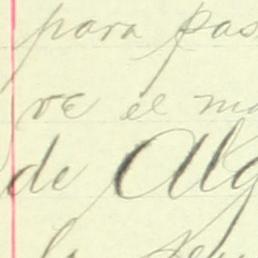 para pas
re el ma
de Alg